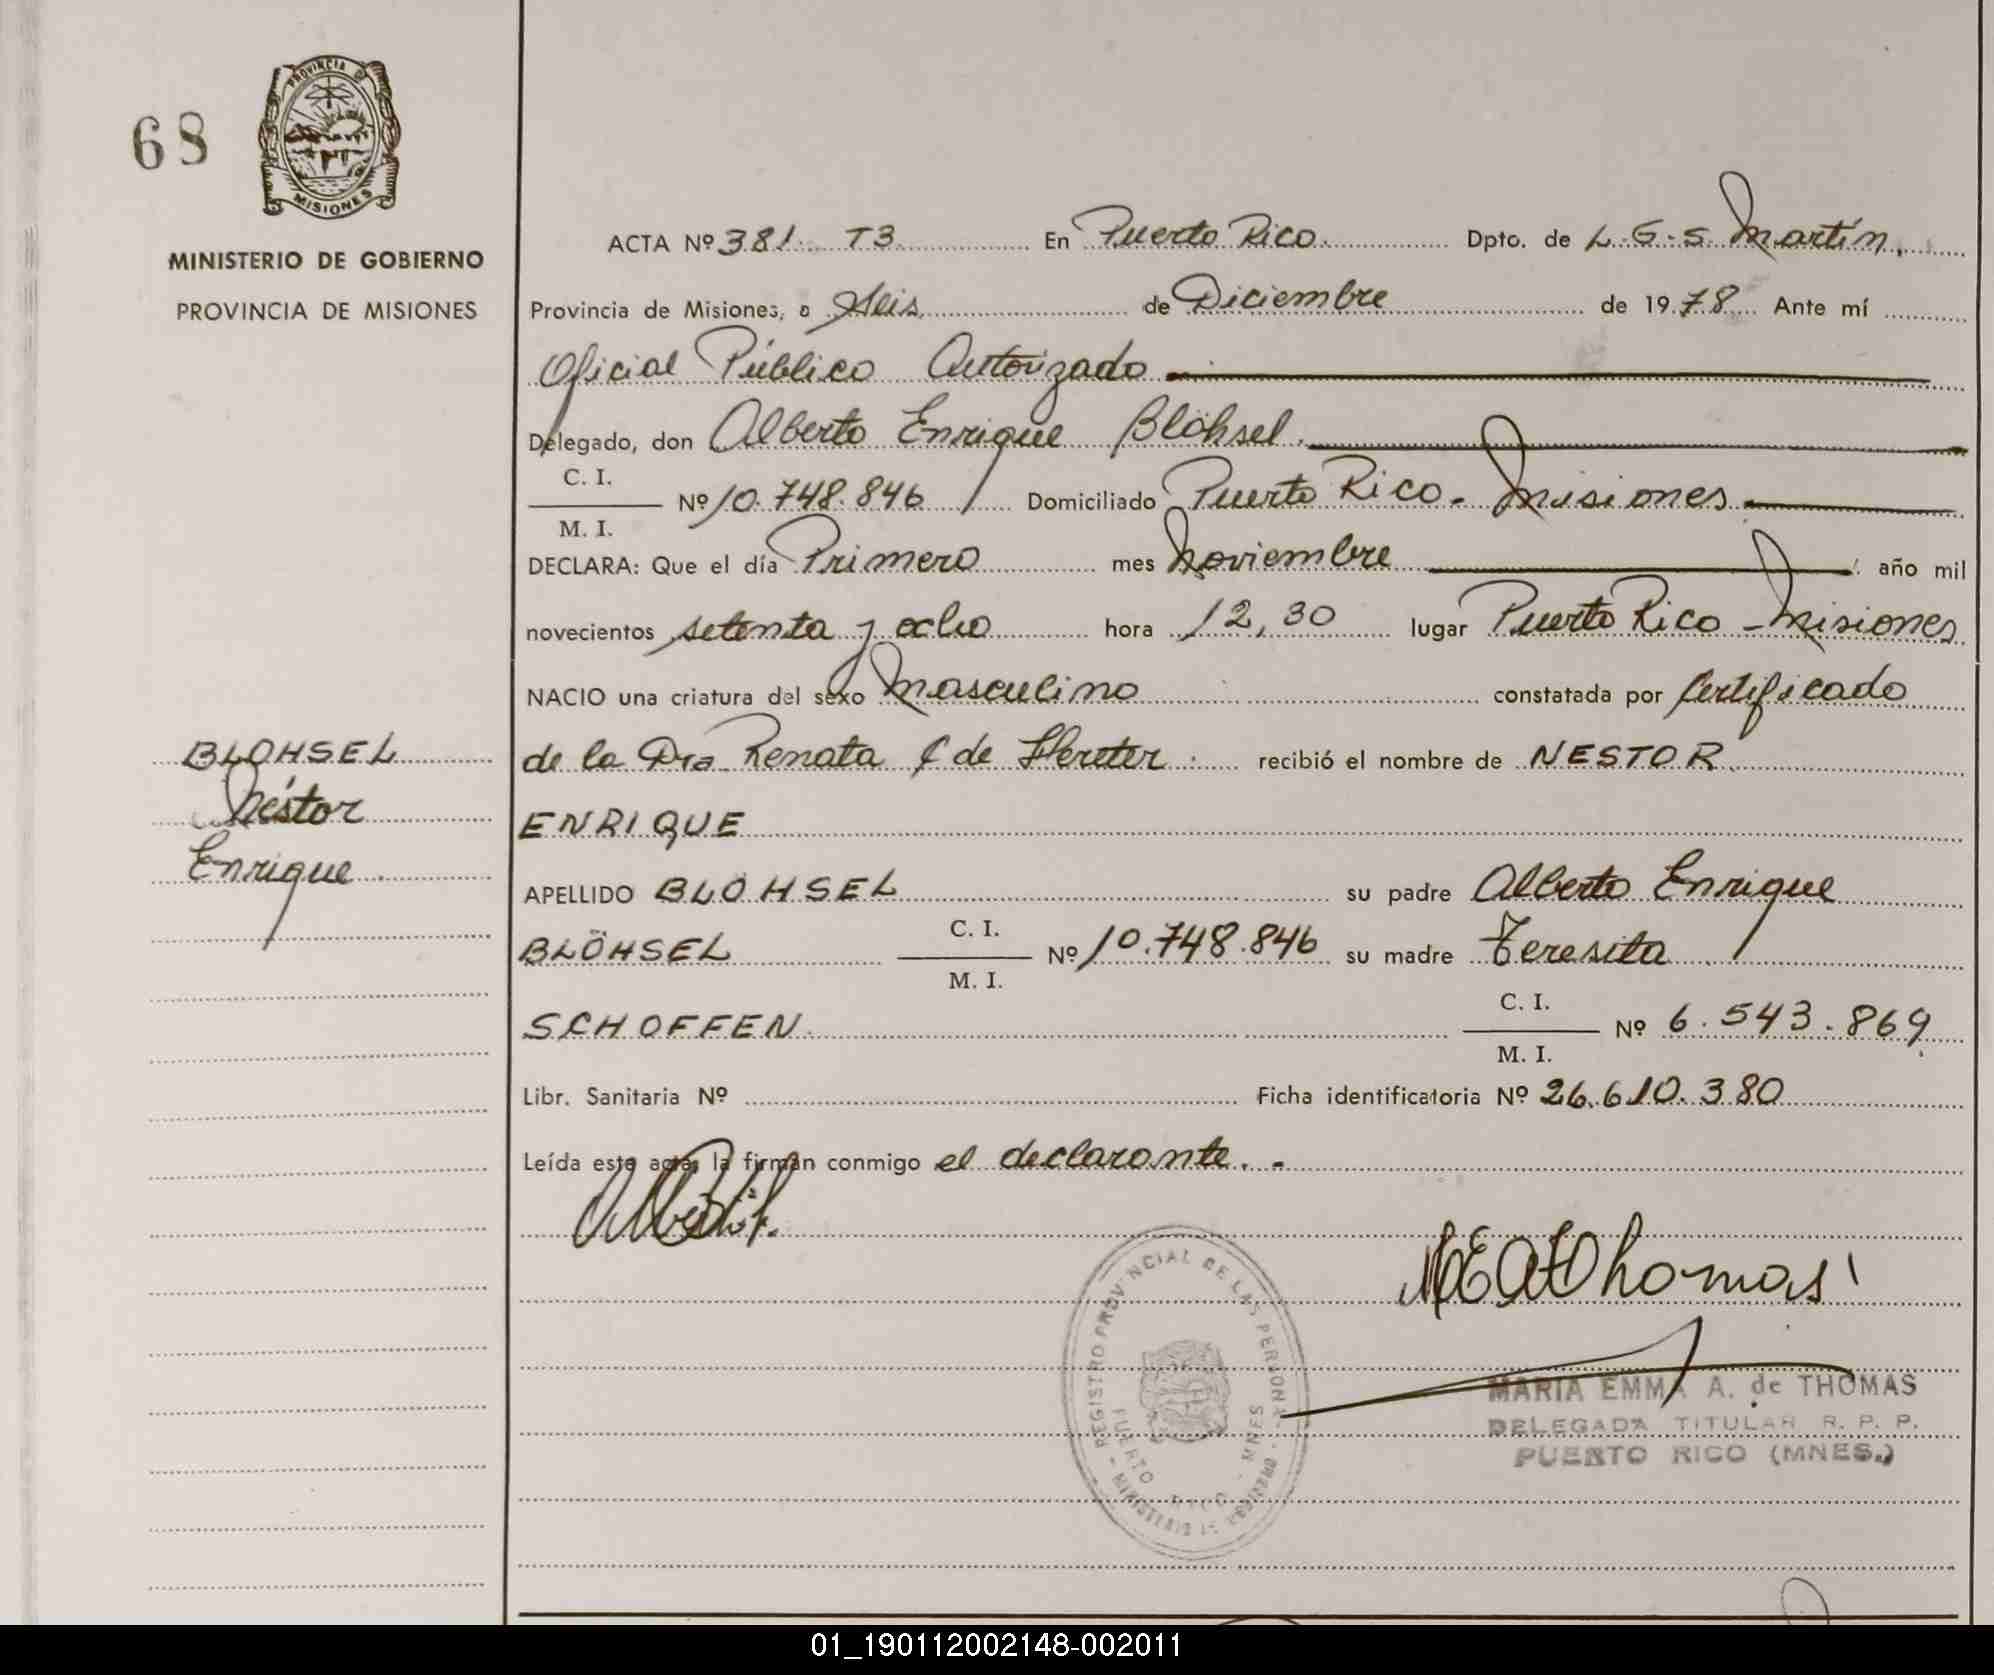 68
PROVINCIA DE
MISIONES
MINISTERIO DE GOBIERNO
PROVINCIA DE MISIONES
ACTA Nº 381 T3 En Puerto Rico. Dpto. de L.G.S. Martín.
Provincia de Misiones, a Seis de Diciembre de 1978 Ante mí
Oficial Público Autorizado
Delegado, don Alberto Enrique Blöhsel.
C. I.
M. I.
Nº 10.748.846 Domiciliado Puerto Rico - Misiones
DECLARA: Que el día Primero mes Noviembre año mil
novecientos setenta y ocho hora 12,30 lugar Puerto Rico - Misiones
NACIO una criatura del sexo Masculino constatada por Certificado
de la Dra Renata de recibió el nombre de NESTOR
ENRIQUE
APELLIDO BLÖHSEL su padre Alberto Enrique
BLÖHSEL C. I.
M. I.
Nº 10.748.846 su madre Teresita
SCHOFFEN C. I.
M. I.
Nº 6.543.869
Libr. Sanitaria Nº Ficha identificatoria Nº 26.610.380
Leída este acta, la firman conmigo el declarante. -
BLOHSEL
Néstor
Enrique.
MEA Thomas
REGISTRO PROVINCIAL DE LAS PERSONAS
PUERTO RICO - MNES
MARIA EMMA A. de THOMAS
DELEGADA TITULAR R. P. P.
PUERTO RICO (MNES.)
01_190112002148-002011